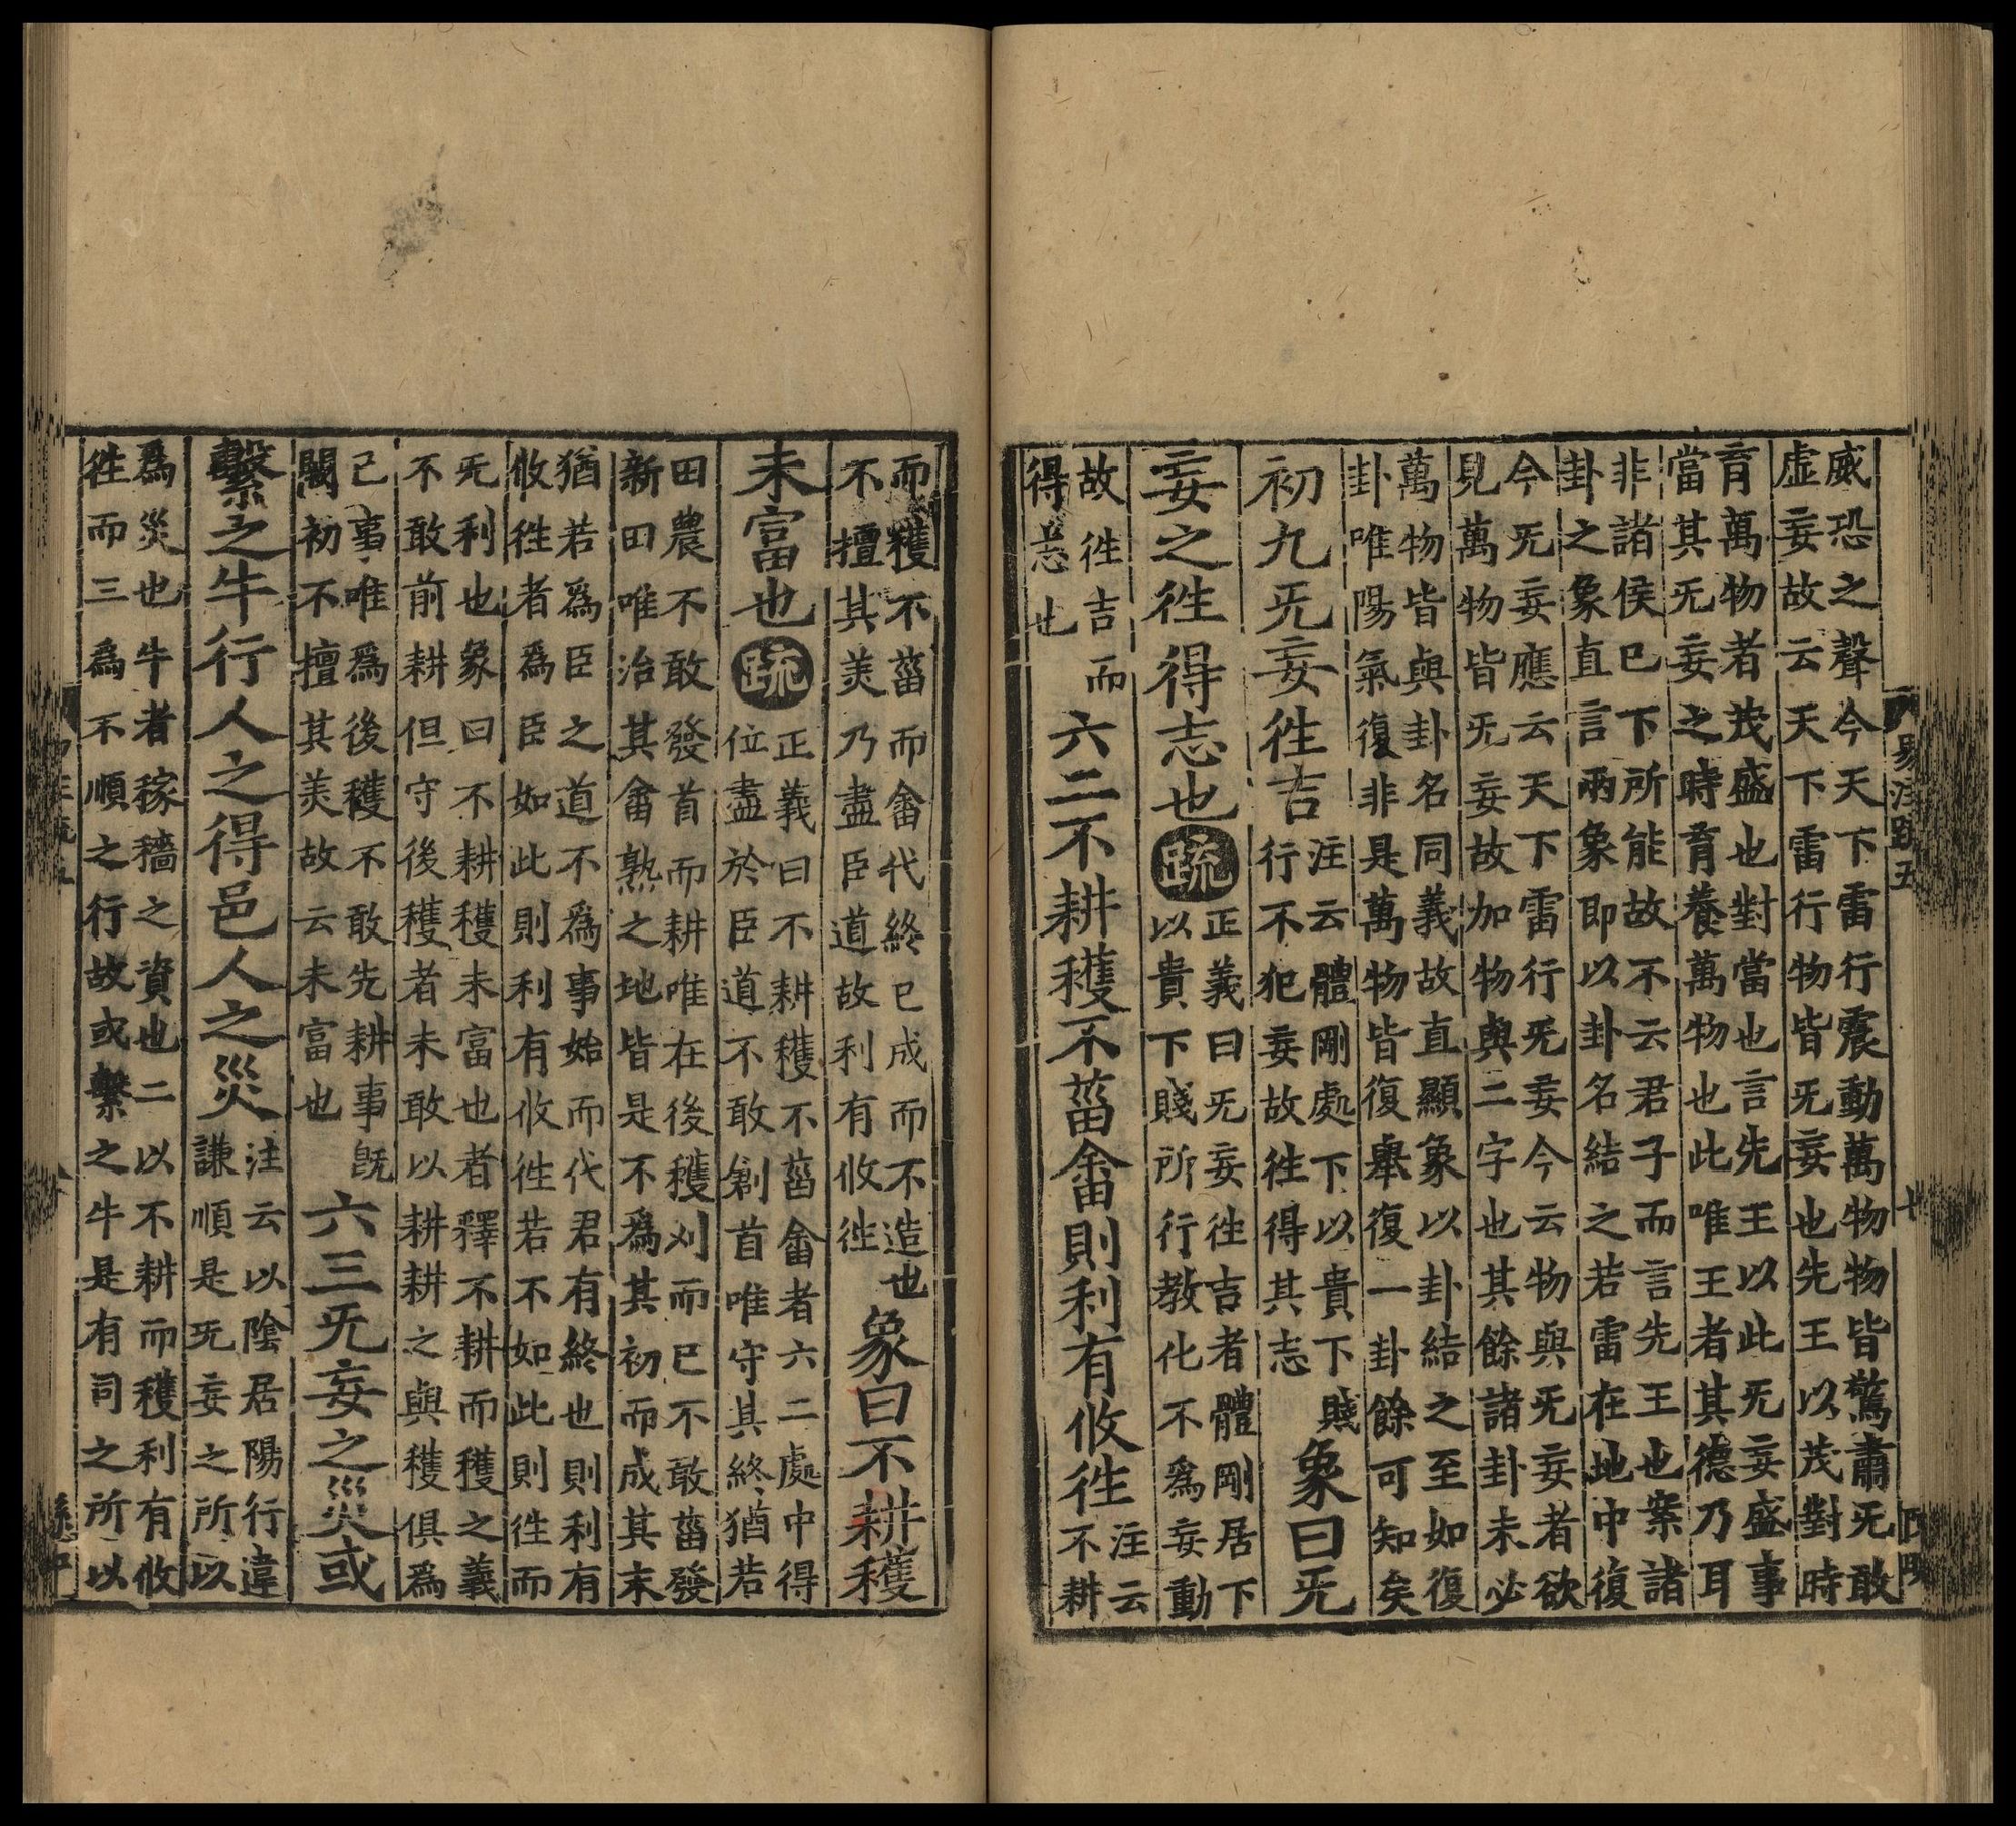 威恐之聲今天下雷行震動萬物物皆驚肅无敢
虚妄故云天下雷行物皆无妄也先王以茂對時
育萬物者茂盛也對當也言先王以此无妄盛事
當其无妄之時育養萬物也此唯王者其德乃耳
非諸侯已下所能故不云君子而言先王也案諸
卦之象直言兩象即以卦名結之若雷在地中復
今无妄應云天下雷行无妄今云物與无妄者欲
見萬物皆无妄故加物與二字也其餘諸卦未必
萬物皆與卦名同義故直顯象以卦結之至如復
卦唯陽氣復非是萬物皆復舉復一卦餘可知矣
初九无妄徃吉
注云體剛處下以貴下賤
行不犯妄故徃得其志
象曰无
妄之徃得志也疏
正義曰无妄徃吉者體剛居下
以貴下賤所行教化不爲妄動
故徃吉而
得志也
六二不耕穫不菑畬則利有攸徃
注云
不耕
易注疏五
而穫不菑而畬代終已成而不造也
不擅其美乃盡臣道故利有攸徃
象曰不耕穫
未富也疏
正義曰不耕穫不菑畬者六二處中得
位盡於臣道不敢創首唯守其終猶若
田農不敢發首而耕唯在後穫刈而已不敢菑發
新田唯治其畬熟之地皆是不爲其初而成其末
猶若爲臣之道不爲事始而代君有終也則利有
攸徃者爲臣如此則利有攸徃若不如此則徃而
无利也象曰不耕穫未富也者釋不耕而穫之義
不敢前耕但守後穫者未敢以耕耕之與穫俱爲
己事唯爲後穫不敢先耕事既
闕初不擅其美故云未富也
六三无妄之災或
繫之牛行人之得邑人之災
注云以陰居陽行違
謙順是无妄之所以
爲災也牛者稼穡之資也二以不耕而穫利有攸
徃而三爲不順之行故或繫之牛是有司之所以